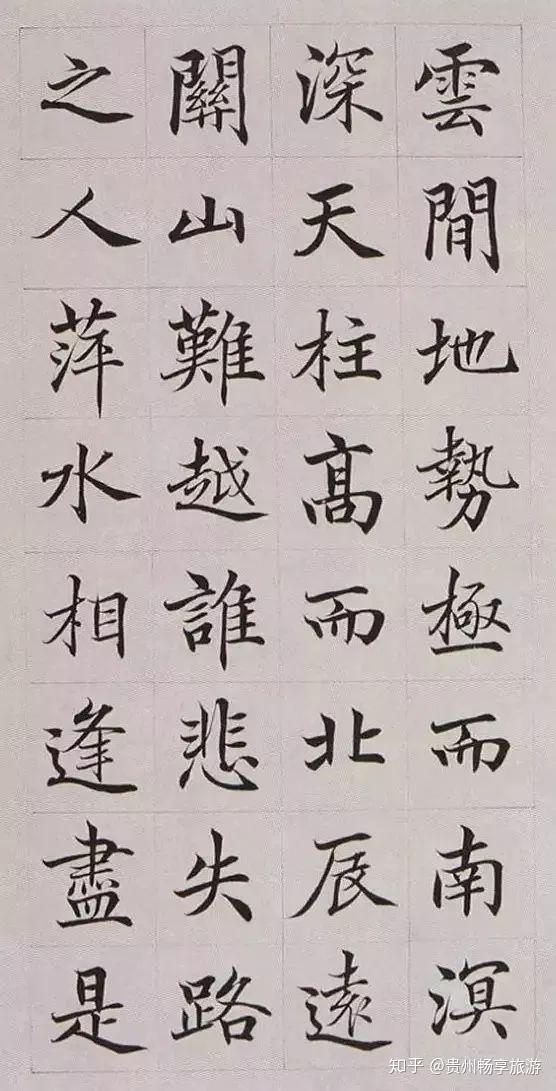 雲間地勢極而南溟
深天柱高而北辰遠
關山難越誰悲失路
之人萍水相逢盡是
知乎 @贵州畅享旅游